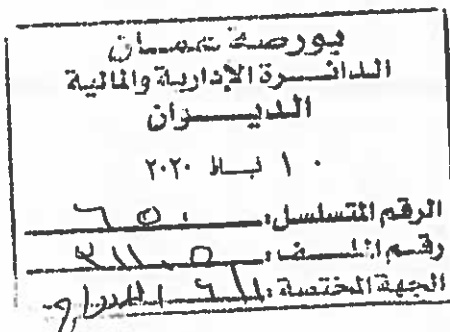 بورصة عمان
الدائرة الإدارية والمالية
الديوان
١٠ شباط ٢٠٢٠
الرقم المتسلسل: ٦٥٠
رقم الملف:
الجهة المختصة: